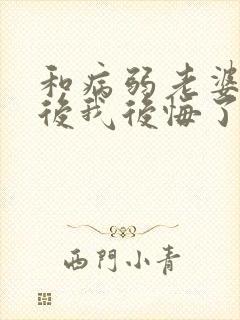 和病弱老婆
後我後悔了
西門小青